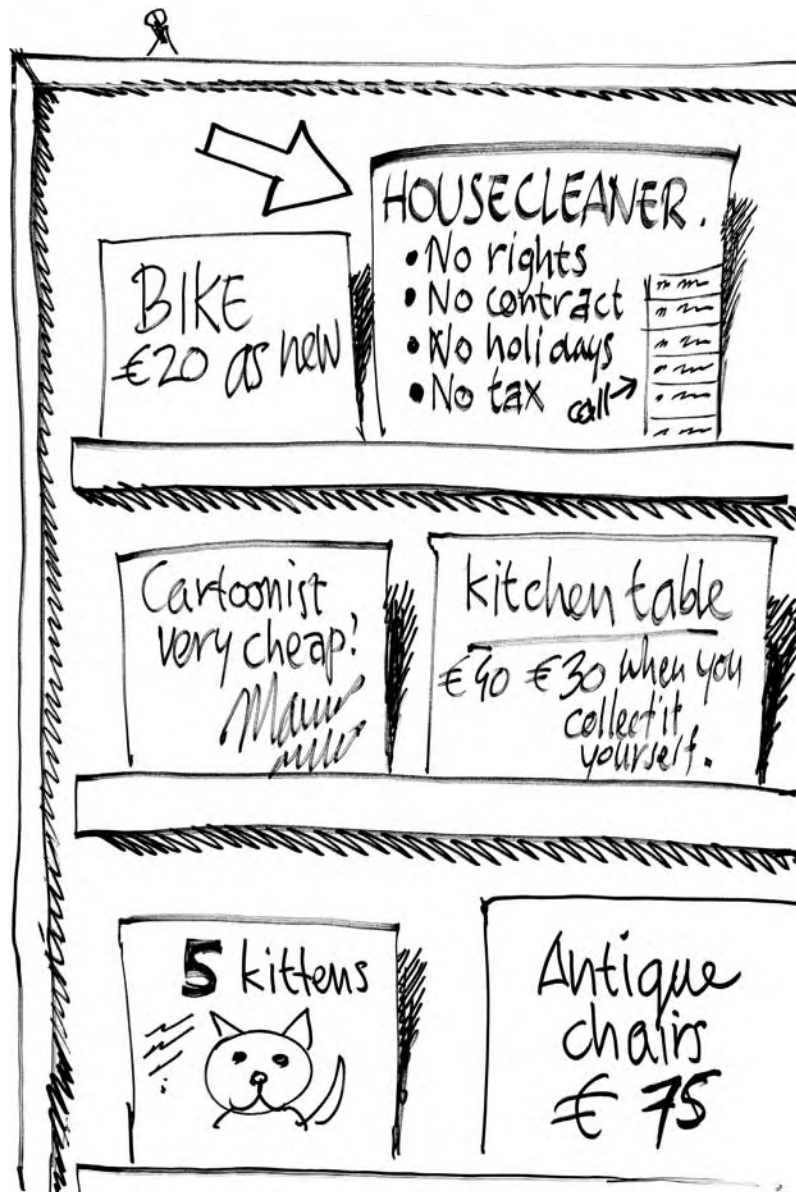 HOUSECLEANER.
• No rights
• No contract
• No holidays
• No tax
call
BIKE
€20 as new
Cartoonist
very cheap!
kitchen table
€40 €30 when you
collect it
yourself.
5 kittens
Antique
chairs
€ 75